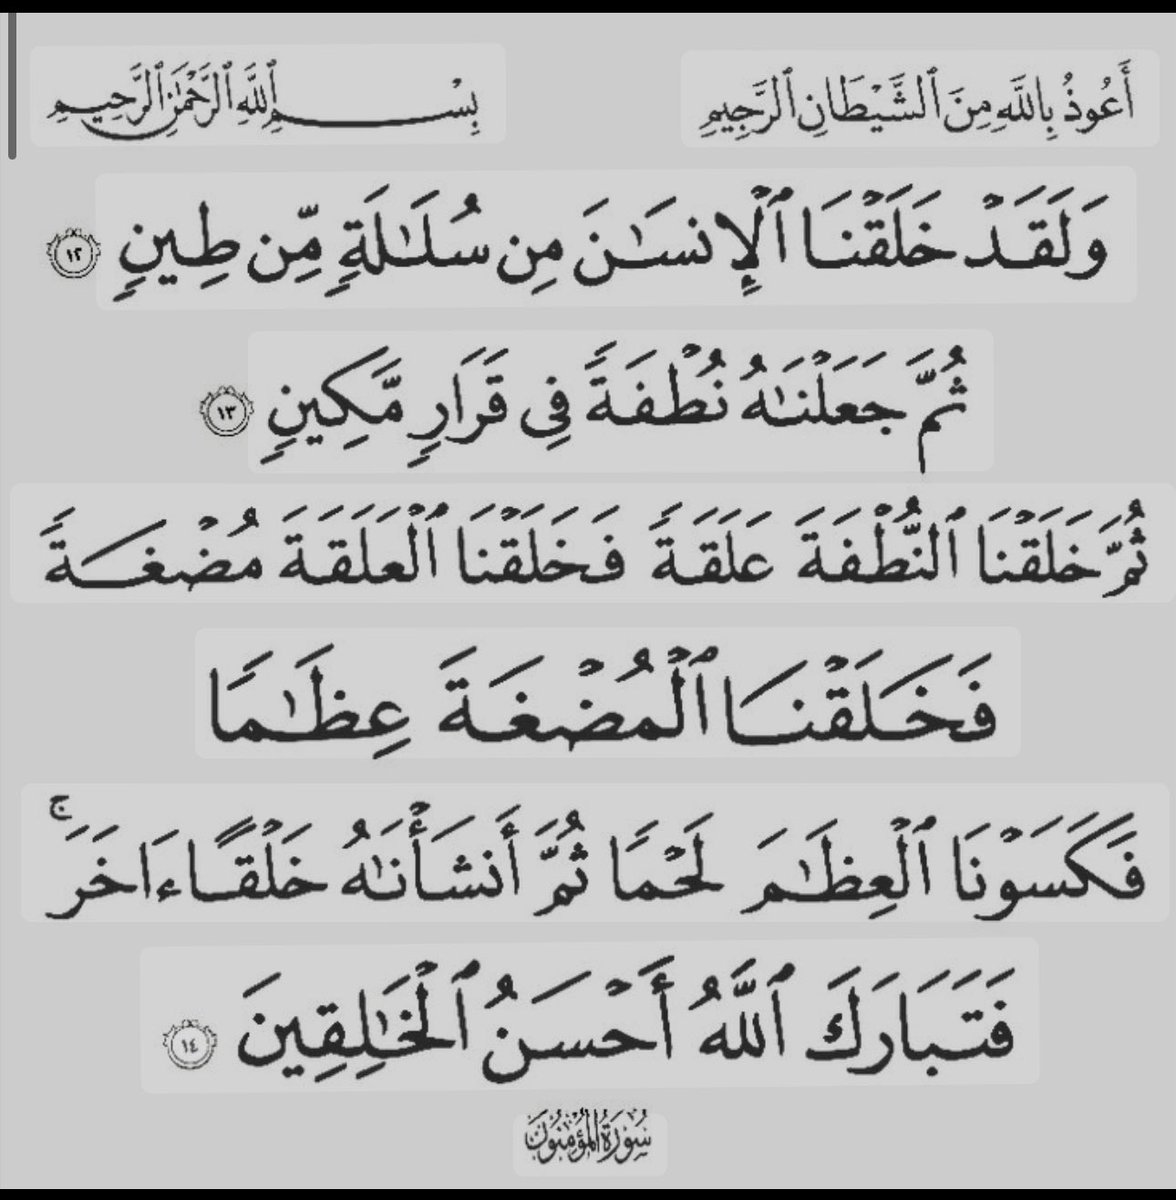 أَعُوذُ بِاللَّهِ مِنَ ٱلشَّيْطَانِ ٱلرَّجِيمِ
بِسْمِ ٱللَّهِ ٱلرَّحْمَٰنِ ٱلرَّحِيمِ
وَلَقَدْ خَلَقْنَا ٱلْإِنسَٰنَ مِن سُلَٰلَةٍ مِّن طِينٍ ١٢
ثُمَّ جَعَلْنَٰهُ نُطْفَةً فِى قَرَارٍ مَّكِينٍ ١٣
ثُمَّ خَلَقْنَا ٱلنُّطْفَةَ عَلَقَةً فَخَلَقْنَا ٱلْعَلَقَةَ مُضْغَةً
فَخَلَقْنَا ٱلْمُضْغَةَ عِظَٰمًا
فَكَسَوْنَا ٱلْعِظَٰمَ لَحْمًا ثُمَّ أَنشَأْنَٰهُ خَلْقًا ءَاخَرَ ۚ
فَتَبَارَكَ ٱللَّهُ أَحْسَنُ ٱلْخَٰلِقِينَ ١٤
سُورَةُ الْمُؤْمِنُونَ